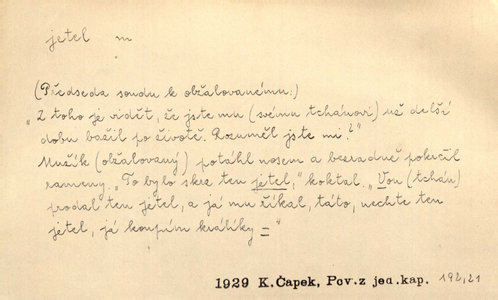 jetel m
(Předseda soudu k obžalovanému:)
„Z toho je vidět, že jste mu (svému tchánovi) už delší
dobu bažil po životě. Rozuměl jste mi?"
Mužík (obžalovaný) potáhl nosem a bezradně pokrčil
rameny. „To bylo skrz ten jetel," koktal. „Von (tchán)
prodal ten jetel, a já mu říkal, táto, nechte ten
jetel, já koupím králíky = "
1929 K.Čapek, Pov.z jed.kap. 192,21